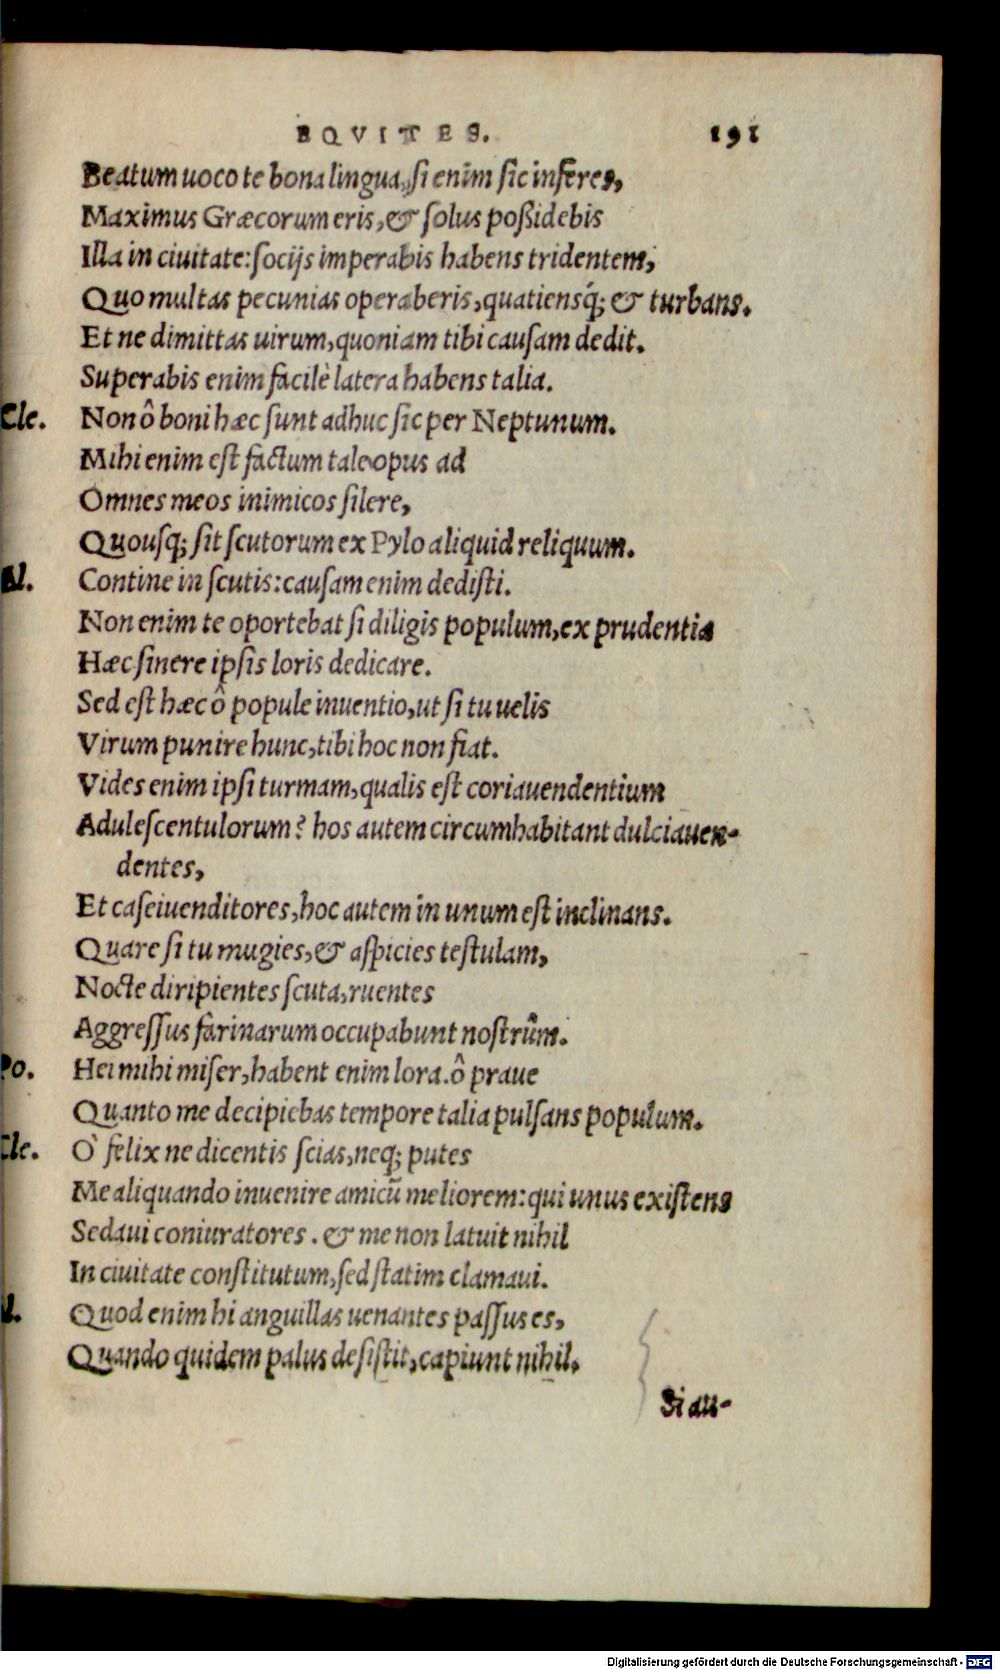 EQVITES. 191
Beatum uoco te bona lingua, si enim sic inferes,
Maximus Græcorum eris, & solus poßidebis
Illa in ciuitate: socijs imperabis habens tridentem,
Quo multas pecunias operaberis, quatiensq́; & turbans.
Et ne dimittas uirum, quoniam tibi causam dedit.
Superabis enim facilè latera habens talia.
Cle. Non ô boni hæc sunt adhuc sic per Neptunum.
Mihi enim est factum tale opus ad
Omnes meos inimicos silere,
Quousq; sit scutorum ex Pylo aliquid reliquum.
Al. Contine in scutis: causam enim dedisti.
Non enim te oportebat si diligis populum, ex prudentia
Hæc sinere ipsis loris dedicare.
Sed est hæc ô popule inuentio, ut si tu uelis
Virum punire hunc, tibi hoc non fiat.
Vides enim ipsi turmam, qualis est coriauendentium
Adulescentulorum? hos autem circumhabitant dulciauen-
dentes,
Et caseiuenditores, hoc autem in unum est inclinans.
Quare si tu mugies, & aspicies testulam,
Nocte diripientes scuta, ruentes
Aggressus farinarum occupabunt nostrûm.
Po. Hei mihi miser, habent enim lora. ô praue
Quanto me decipiebas tempore talia pulsans populum.
Cle. Ò felix ne dicentis scias, neq; putes
Me aliquando inuenire amicū meliorem: qui unus existens
Sedaui coniuratores. & me non latuit nihil
In ciuitate constitutum, sed statim clamaui.
l. Quod enim hi anguillas uenantes passus es,
Quando quidem palus desistit, capiunt nihil.
Si au-
Digitalisierung gefördert durch die Deutsche Forschungsgemeinschaft - DFG